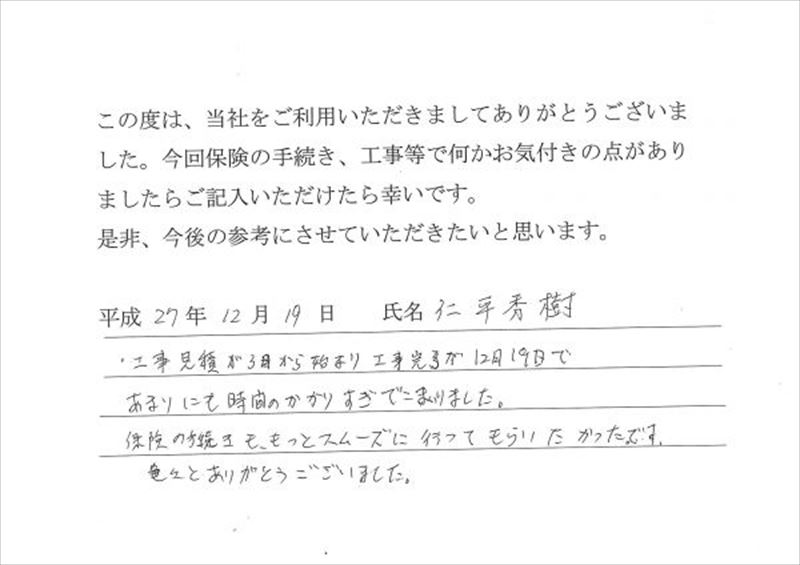 この度は、当社をご利用いただきましてありがとうございま
した。今回保険の手続き、工事等で何かお気付きの点があり
ましたらご記入いただけたら幸いです。
是非、今後の参考にさせていただきたいと思います。
平成 27 年 12 月 19 日 氏名 仁平秀樹
・工事見積が3月から始まり工事完了が12月19日で
あまりにも時間のかかりすぎでこまりました。
保険の手続きも、もっとスムーズに行ってもらいたかったです。
色々とありがとうございました。